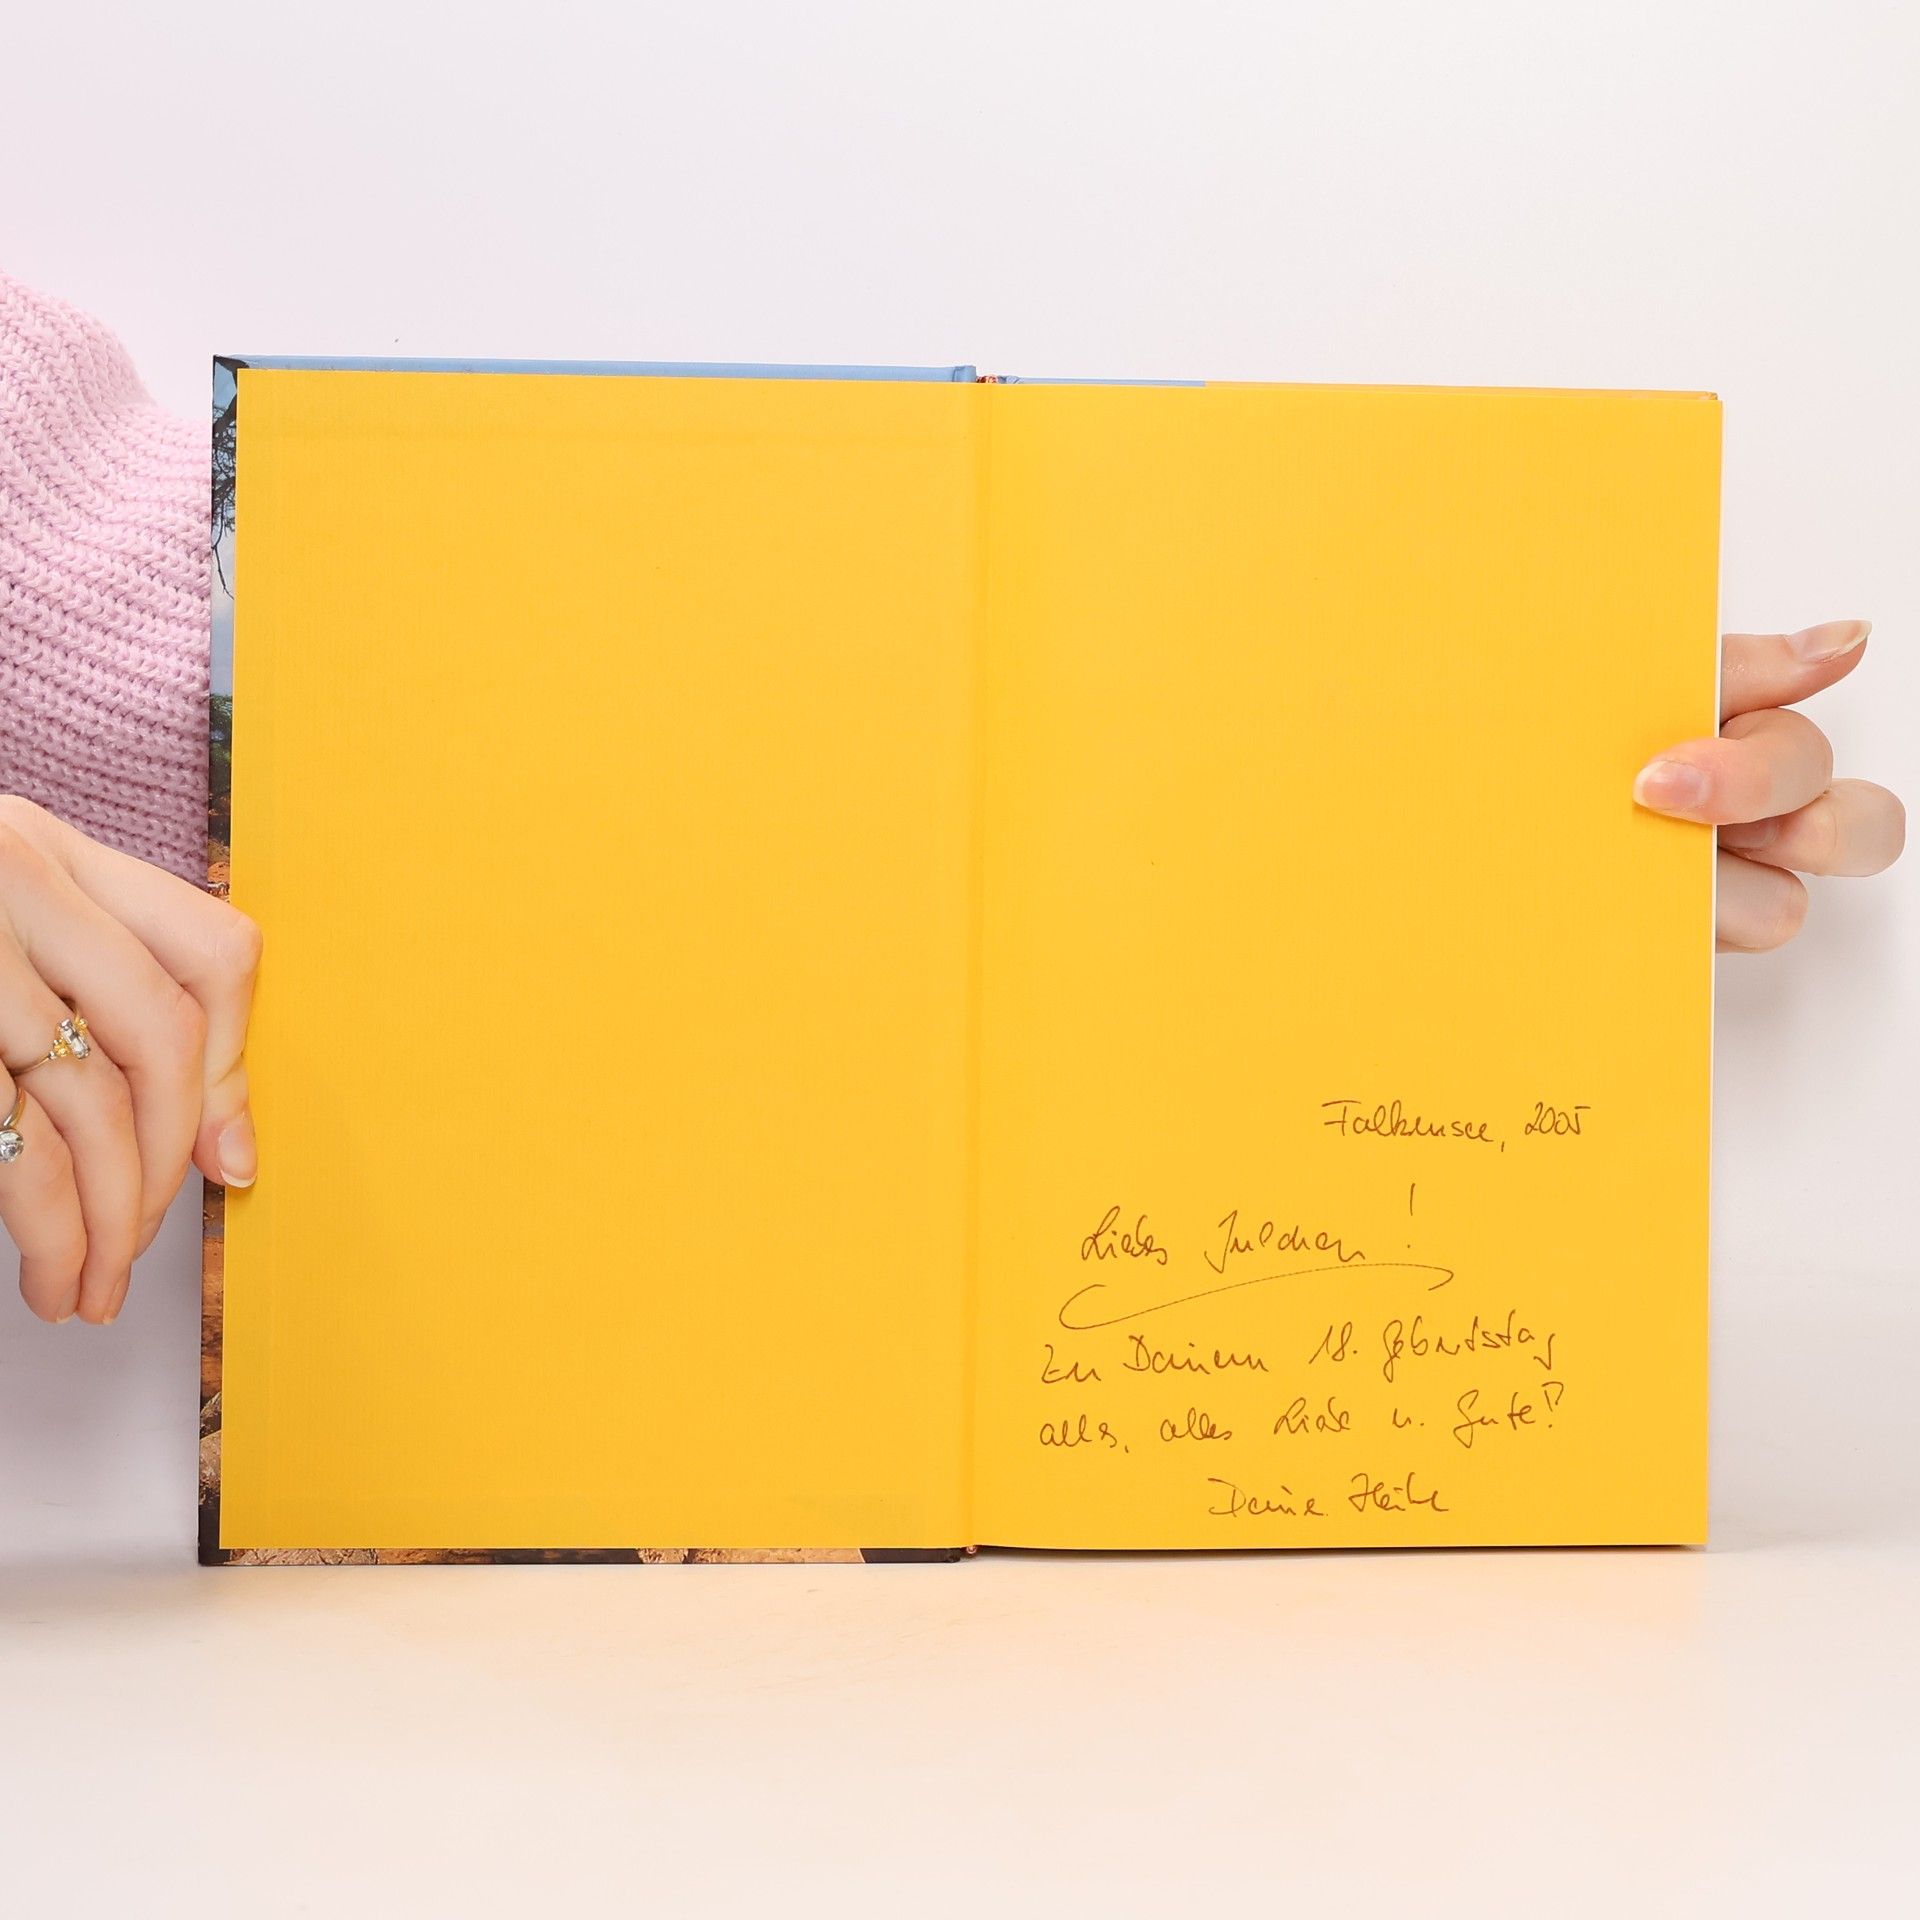 Falkensee, 2005
Liebes Julchen!
Zu Deinem 18. Geburtstag
alles, alles Liebe u. Gute!
Deine Heike